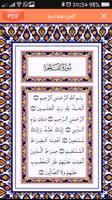 98% 20:54
PDF
quraan.pdf
سورة الفاتحة
بسم الله الرحمن الرحيم
الحمد لله رب العالمين
الرحمن الرحيم ملك يوم الدين
إياك نعبد وإياك نستعين
اهدنا الصراط المستقيم
صراط الذين أنعمت
عليهم غير المغضوب
عليهم ولا الضالين